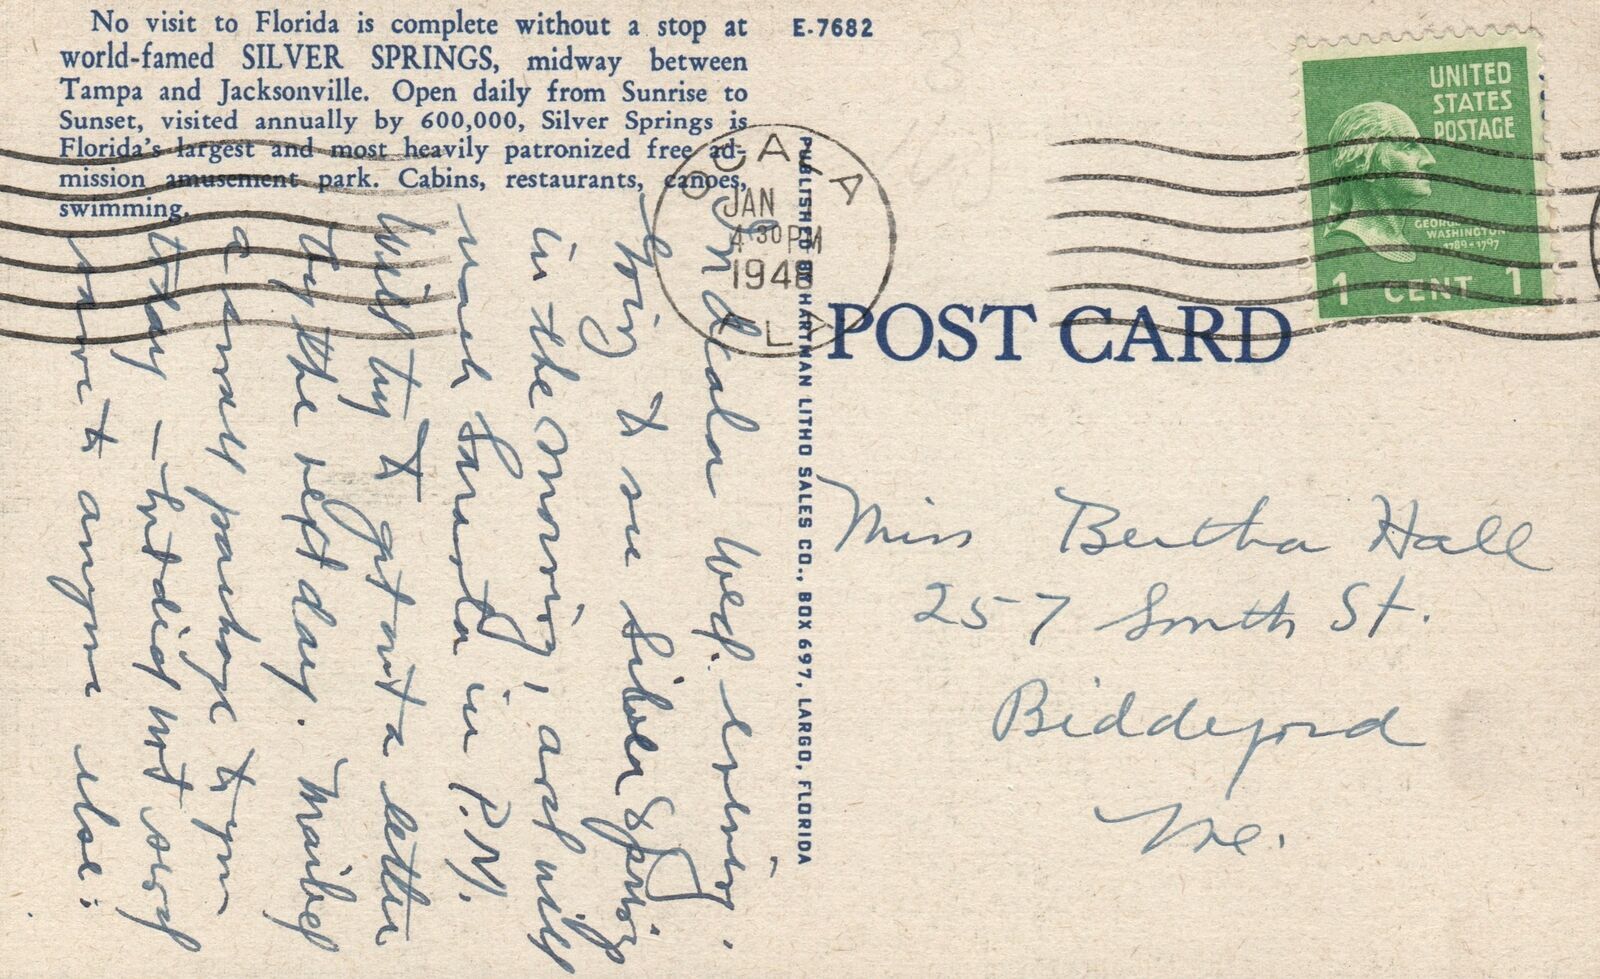 No visit to Florida is complete without a stop at
world-famed SILVER SPRINGS, midway between
Tampa and Jacksonville. Open daily from Sunrise to
Sunset, visited annually by 600,000, Silver Springs is
Florida's largest and most heavily patronized free ad-
mission amusement park. Cabins, restaurants, canoes,
swimming.
E-7682
UNITED
STATES
POSTAGE
GEORGE
WASHINGTON
1789-1797
1 CENT 1
OCALA
JAN
4 30 PM
1948
FLA
PUBLISHED BY HARTMAN LITHO SALES CO., BOX 697, LARGO, FLORIDA
POST CARD
In Ocala Wed. evening.
Going to see Silver Springs
in the morning, and will
reach Sarasota in P.M.
Will try to get out a letter
by the next day. Mailed
a small package to you
today - but did not send
any to anyone else.
Miss Bertha Hall
257 South St.
Biddeford
Me.